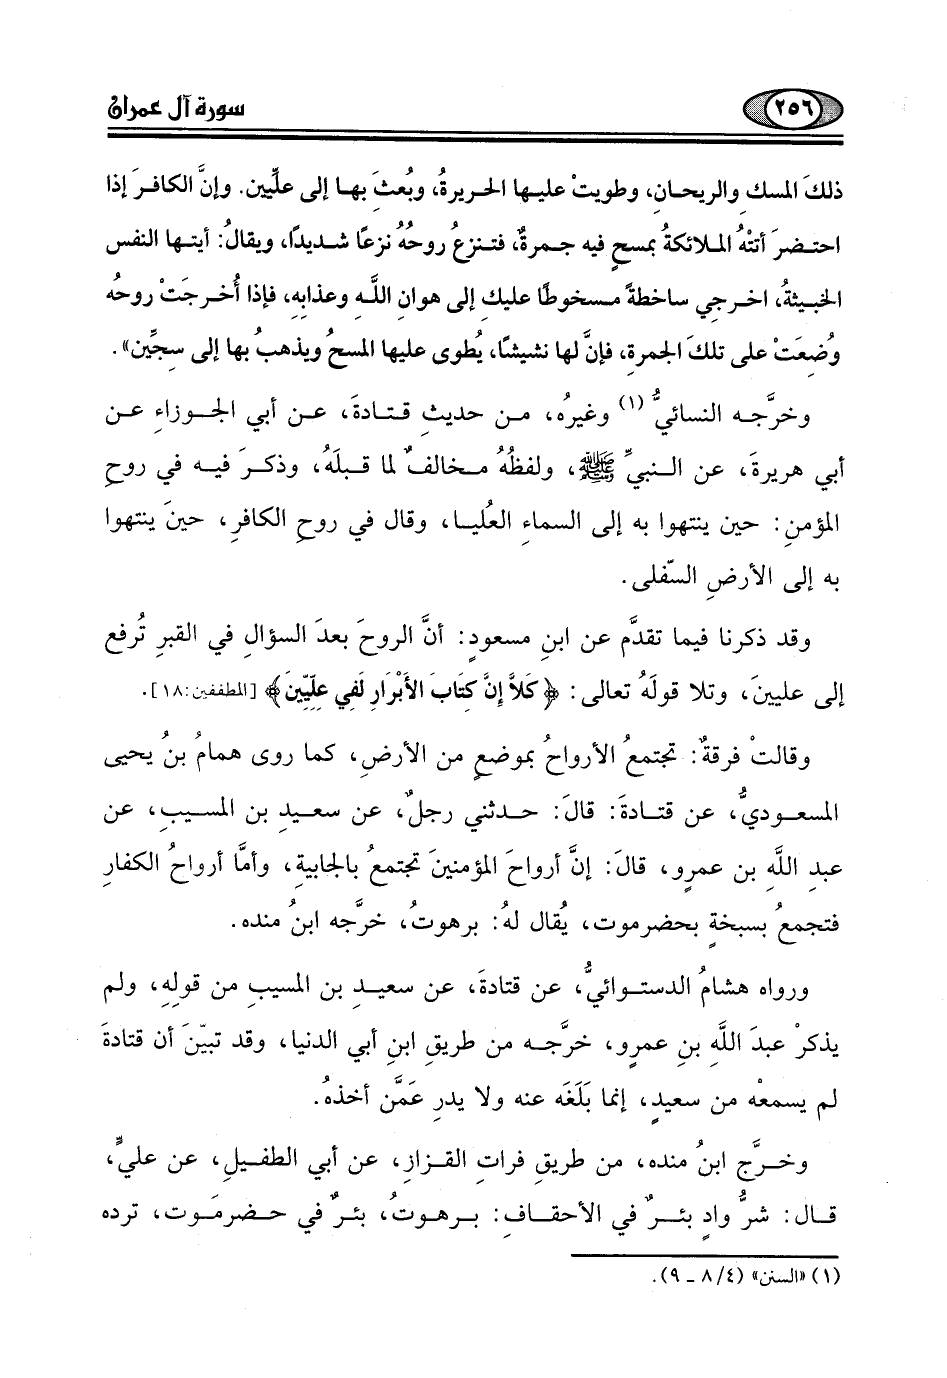 ٢٥٦
سورة آل عمران
ذلكَ المسك والريحان، وطويتْ عليها الحريرةُ، وبُعثَ بها إلى علِّيين. وإنَّ الكافرَ إذا
احتضرَ أتتْهُ الملائكةُ بمسحٍ فيه جمرةٌ، فتنزعُ روحُهُ نزعًا شديدًا، ويقالُ: أيتها النفس
الخبيثةُ، اخرجي ساخطةً مسخوطًا عليكِ إلى هوانِ اللَّهِ وعذابِهِ، فإذا أُخرجَتْ روحُه
وُضِعَتْ على تلكَ الجمرةِ، فإنَّ لها نشيشًا، يُطوى عليها المسحُ ويذهبُ بها إلى سجِّين».
وخرَّجه النسائيُّ (١) وغيرُه، من حديثِ قتادةَ، عن أبي الجوزاءِ عن
أبي هريرةَ، عن النبيِّ ﷺ، ولفظُهُ مخالفٌ لما قبلَهُ، وذكرَ فيه في روحِ
المؤمنِ: حين ينتهوا به إلى السماءِ العُليا، وقال في روحِ الكافرِ، حينَ ينتهوا
به إلى الأرضِ السّفلى.
وقد ذكرنا فيما تقدَّم عن ابنِ مسعودٍ: أنَّ الروحَ بعدَ السؤالِ في القبرِ تُرفع
إلى عليينَ، وتلا قولَهُ تعالى: ﴿كَلاَّ إِنَّ كِتَابَ الأَبْرَارِ لَفِي عِلِّيِّينَ﴾ [المطففين:١٨].
وقالتْ فرقةٌ: تجتمعُ الأرواحُ بموضعٍ من الأرضِ، كما روى همامُ بنُ يحيى
المسعوديُّ، عن قتادةَ: قالَ: حدثني رجلٌ، عن سعيدِ بن المسيبِ، عن
عبدِ اللَّهِ بن عمرو، قالَ: إنَّ أرواحَ المؤمنينَ تجتمعُ بالجابيةِ، وأمَّا أرواحُ الكفارِ
فتجمعُ بسبخةٍ بحضرموت، يُقال لهُ: برهوتُ، خرَّجه ابنُ منده.
ورواه هشامُ الدستوائيُّ، عن قتادةَ، عن سعيدِ بن المسيبِ من قولِهِ، ولم
يذكرْ عبدَ اللَّهِ بن عمرو، خرَّجه من طريقِ ابنِ أبي الدنيا، وقد تبيّنَ أن قتادةَ
لم يسمعْه من سعيدٍ، إنما بَلَغَه عنه ولا يدرِ عَمَّن أخذهُ.
وخرَّج ابنُ منده، من طريقِ فراتِ القزازِ، عن أبي الطفيلِ، عن عليٍّ،
قال: شرُّ وادٍ بئرٌ في الأحقافِ: برهوتُ، بئرٌ في حضرمَوت، ترده
(١) «السنن» (٤/ ٨ ـ ٩).